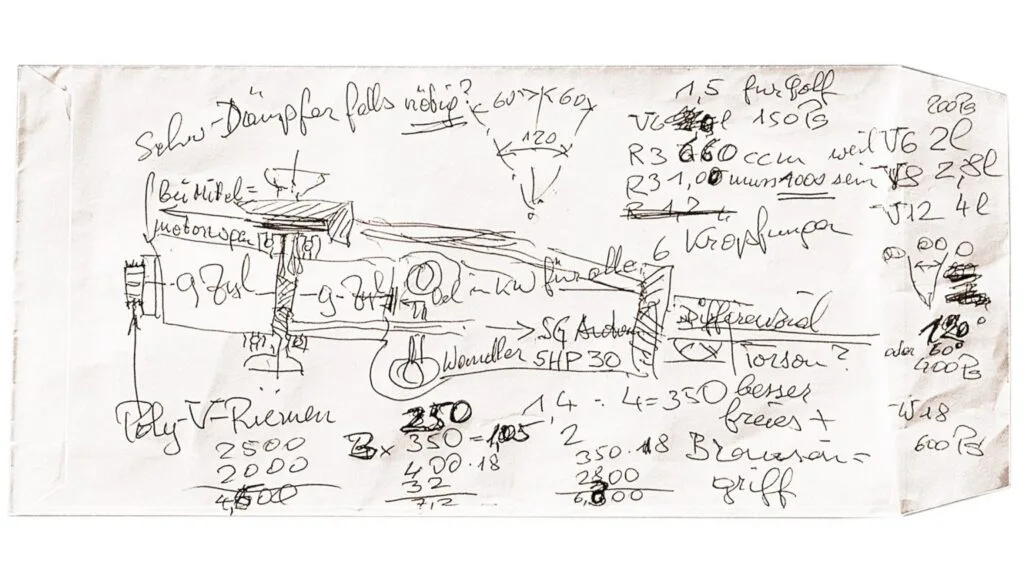 Schw-Dämpfer falls nötig?
60° 60°
120
1,5 für Golf
V6 150 PS
R3 660 ccm weil
R3 1,00 muss 1000 sein
200 PS
V6 2l
V8 2,8l
V12 4l
6 Kröpfungen
Bei Mittel=
motorwagen
9 Zyl
9-Zyl
in KW für alle
Wandler
5HP30
Differenzial
Torson?
besser
freies +
griff
120°
oder 60°
400 PS
W18
600 PS
Poly-V-Riemen
2500
2000
4,500
250
3 x 350 = 1,05
400 · 18
32
7,2
1,4 : 4 = 350
2
350 · 18
2800
6,300